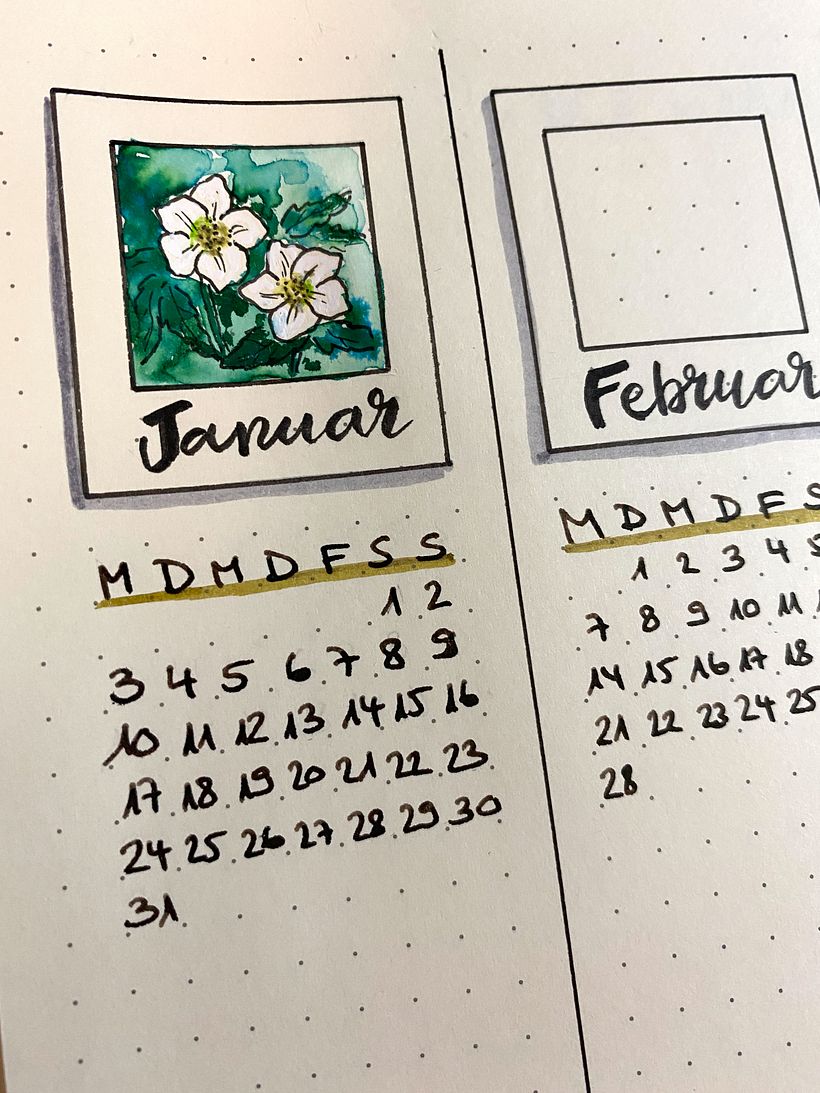 Januar
M D M D F S S
1 2
3 4 5 6 7 8 9
10 11 12 13 14 15 16
17 18 19 20 21 22 23
24 25 26 27 28 29 30
31
Februar
M D M D F S
1 2 3 4 5
7 8 9 10 11
14 15 16 17 18
21 22 23 24 25
28